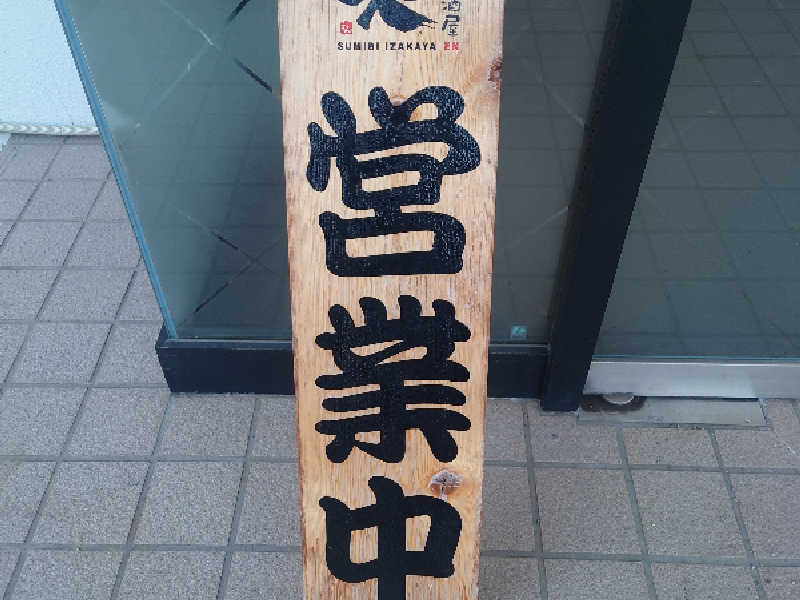 酒屋
SUMIBI IZAKAYA ZEN
営業中